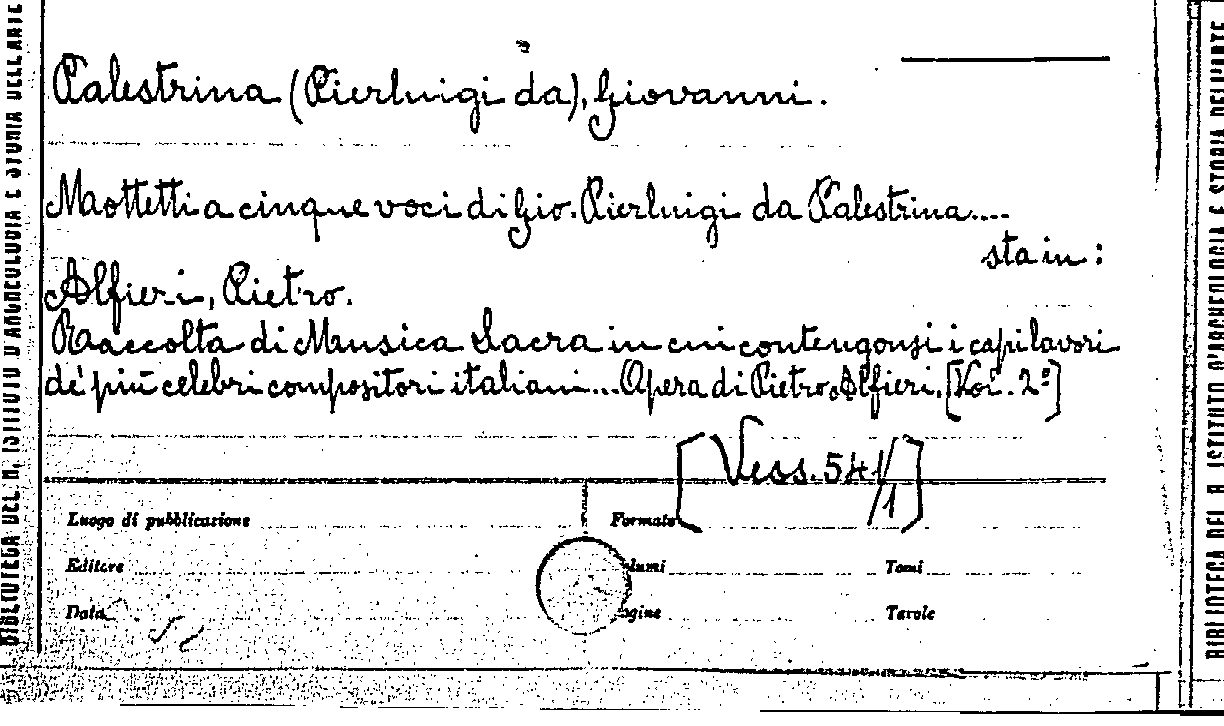 Palestrina (Pierluigi da), Giovanni.
Mottetti a cinque voci di Gio. Pierluigi da Palestrina....
sta in:
Alfieri, Pietro.
Raccolta di Musica Sacra in cui contengonsi i capi lavori
de' più celebri compositori italiani... Opera di Pietro Alfieri. [Vol. 2º]
[Vess. 541/1]
Luogo di pubblicazione
Formato
Editore
lumi
Tomi
Data
gine
Tavole
BIBLIOTECA DEL R. ISTITUTO D'ARCHEOLOGIA E STORIA DELL'ARTE
BIBLIOTECA DEL R. ISTITUTO D'ARCHEOLOGIA E STORIA DELL'ARTE